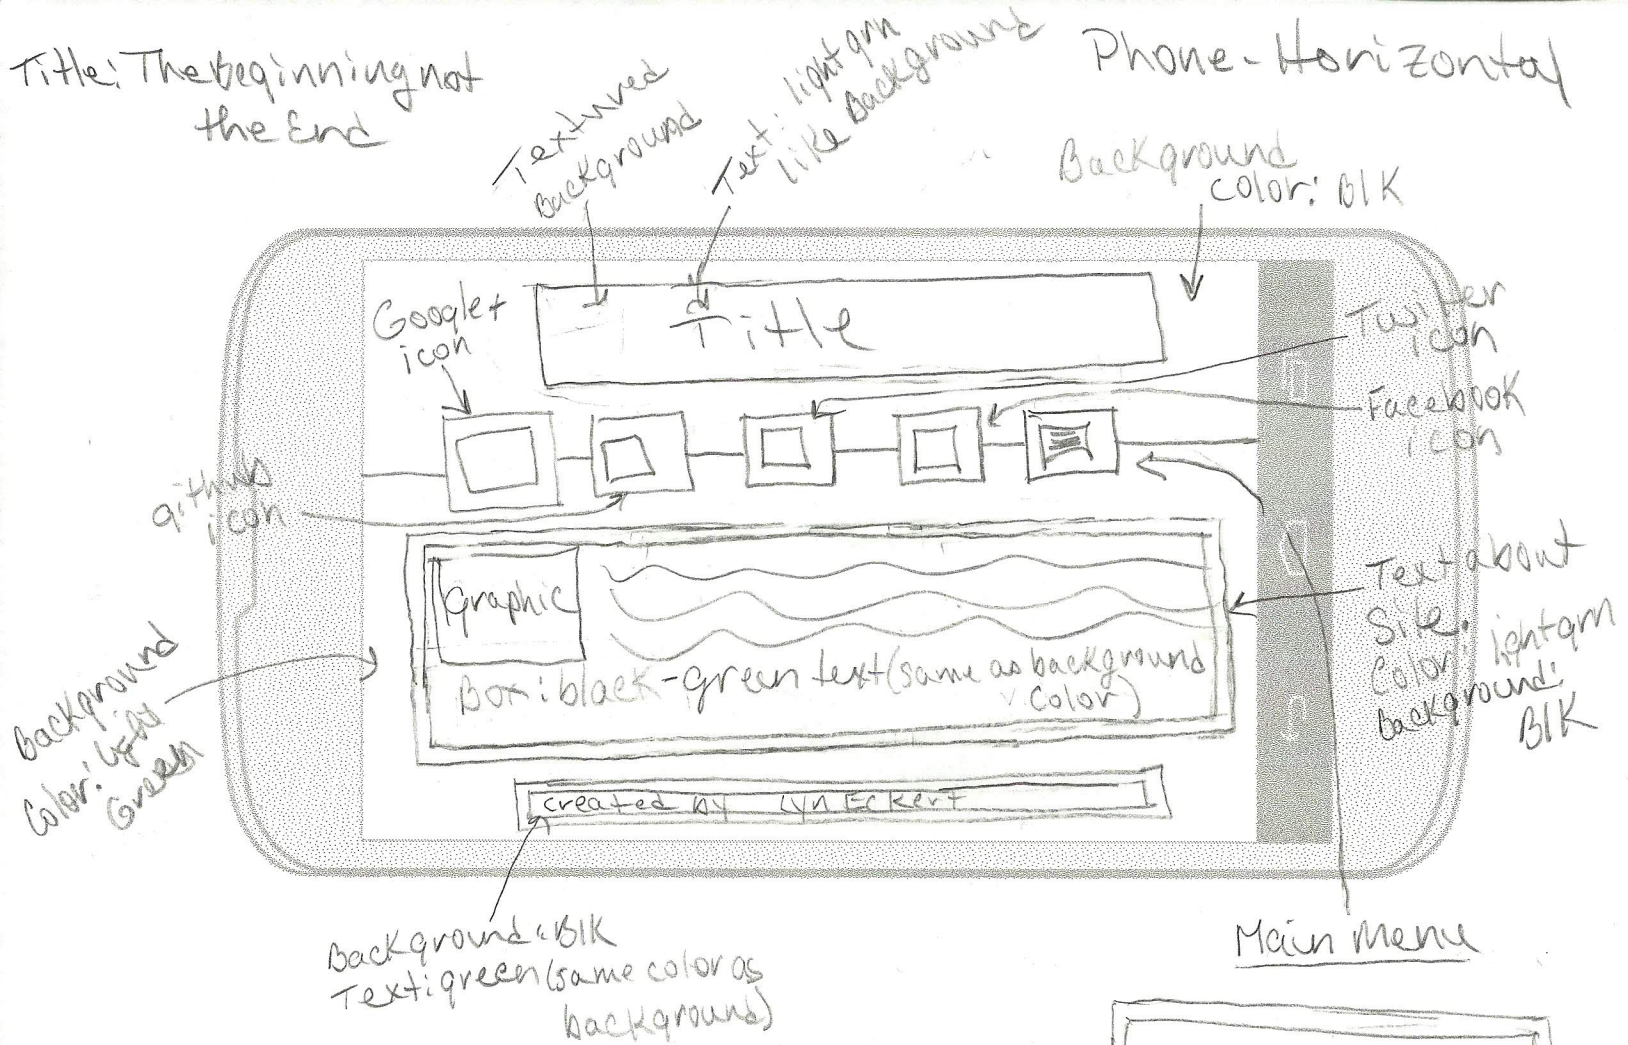 Title: The beginning not
the End
Textured
Background
Text: light grn
like Background
Phone-Horizontal
Background
color: Blk
Google+
icon
Title
Twitter
icon
Facebook
icon
github
icon
Graphic
Box: black-green text (same as background
color)
Text about
Site.
Color: lightgrn
background:
Blk
Background
Color: light
Green
created by Lyn Eckert
Background: Blk
Text: green (same color as
background)
Main Menu